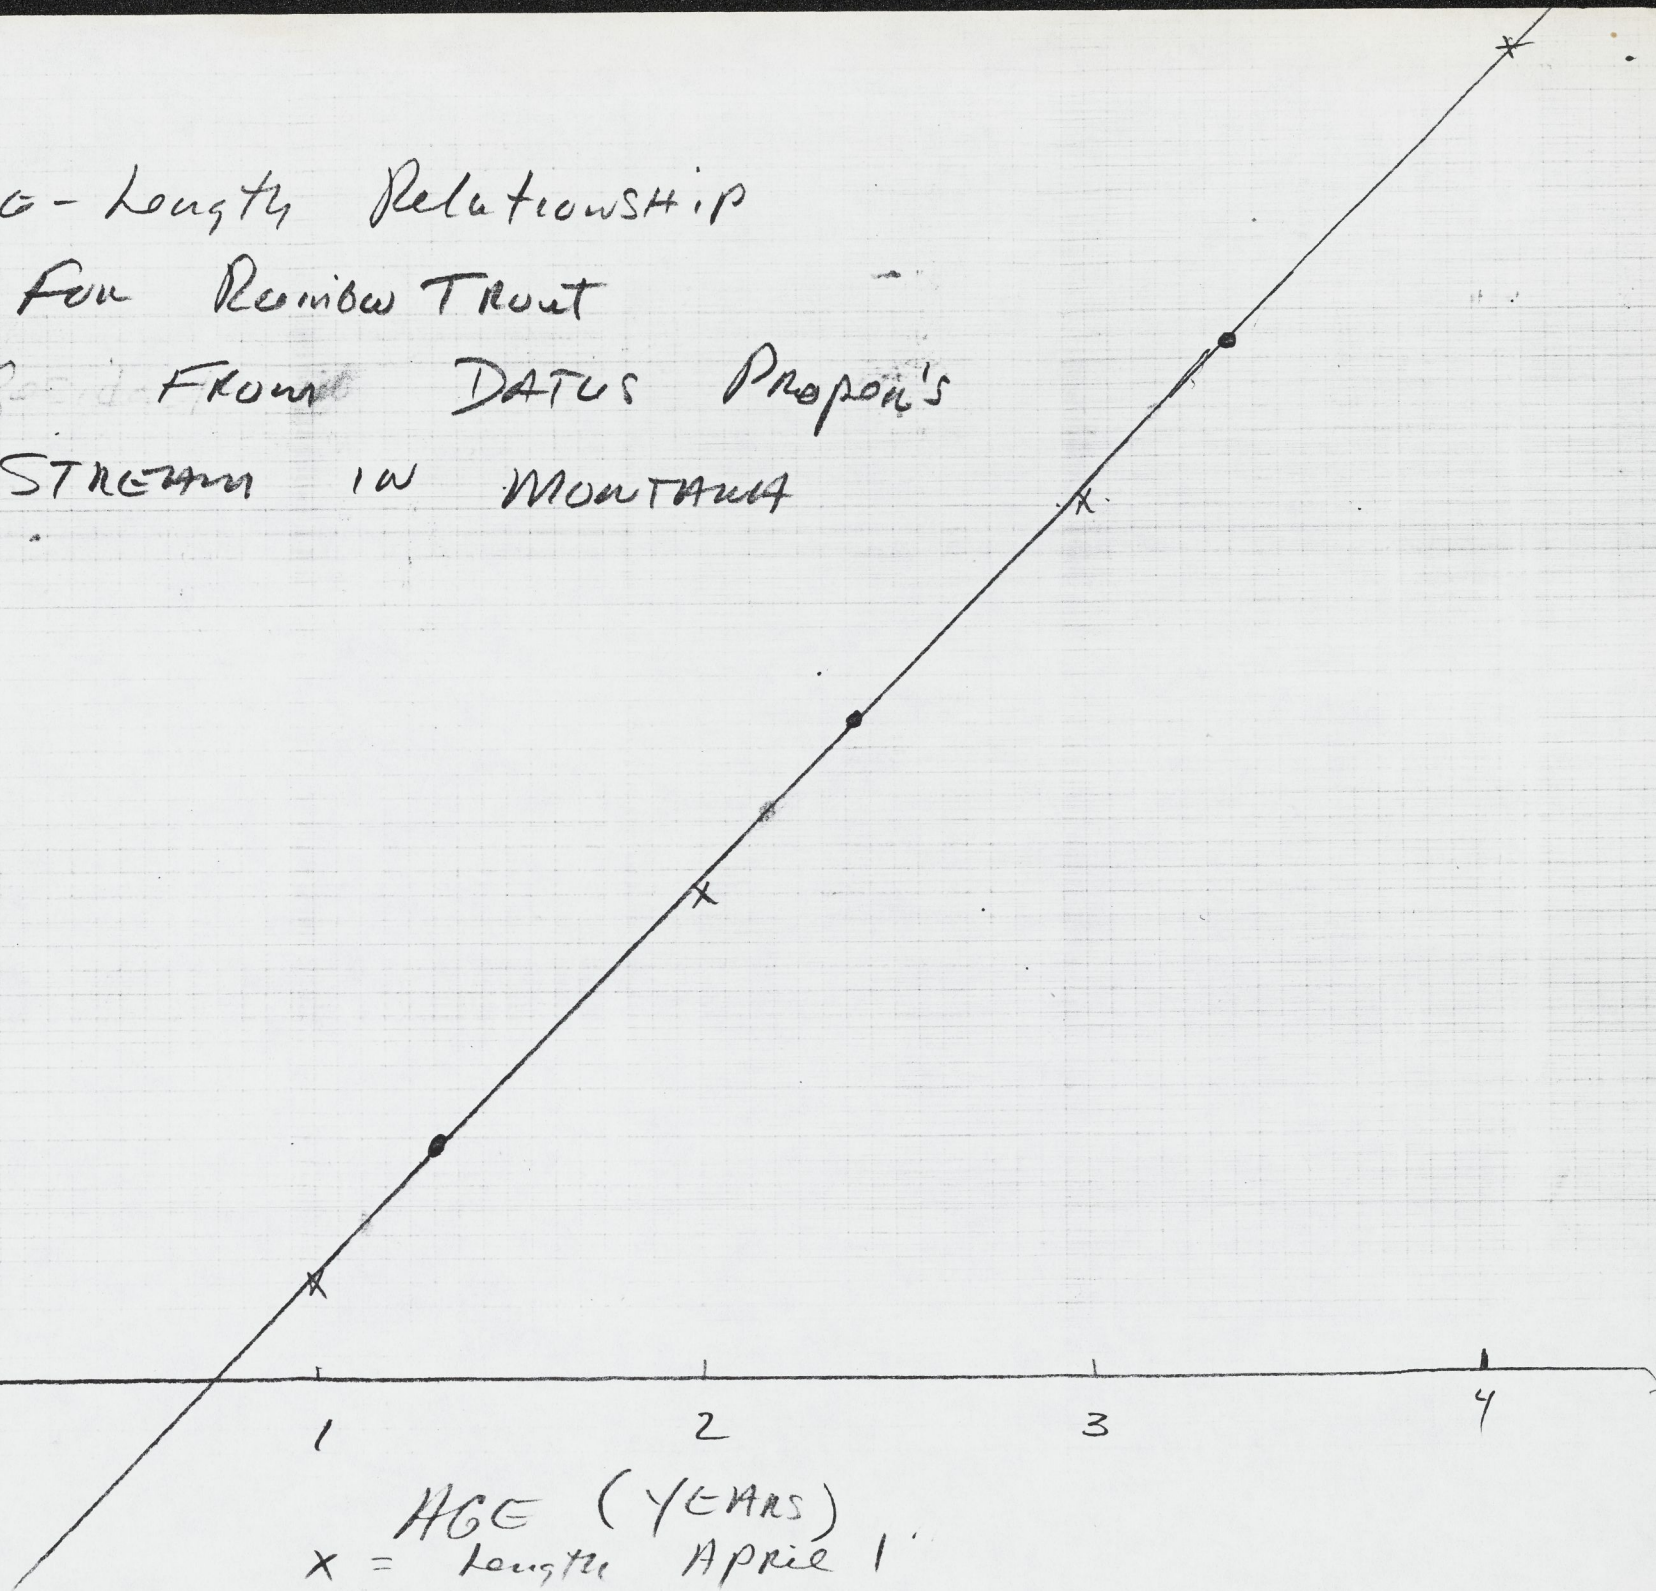 e-Length Relationship
For Rainbow Trout
From Datus Proper's
Stream in Montana
1 2 3 4
AGE (YEARS)
x = Length April 1